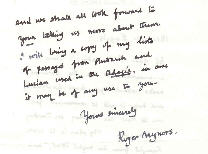 and we shall all look forward to
your telling us more about them.
I will bring a copy of my lists
of passages from Plutarch and
Lucian used in the Adagia, in case
it may be of any use to you.
Yours sincerely
Roger Mynors.